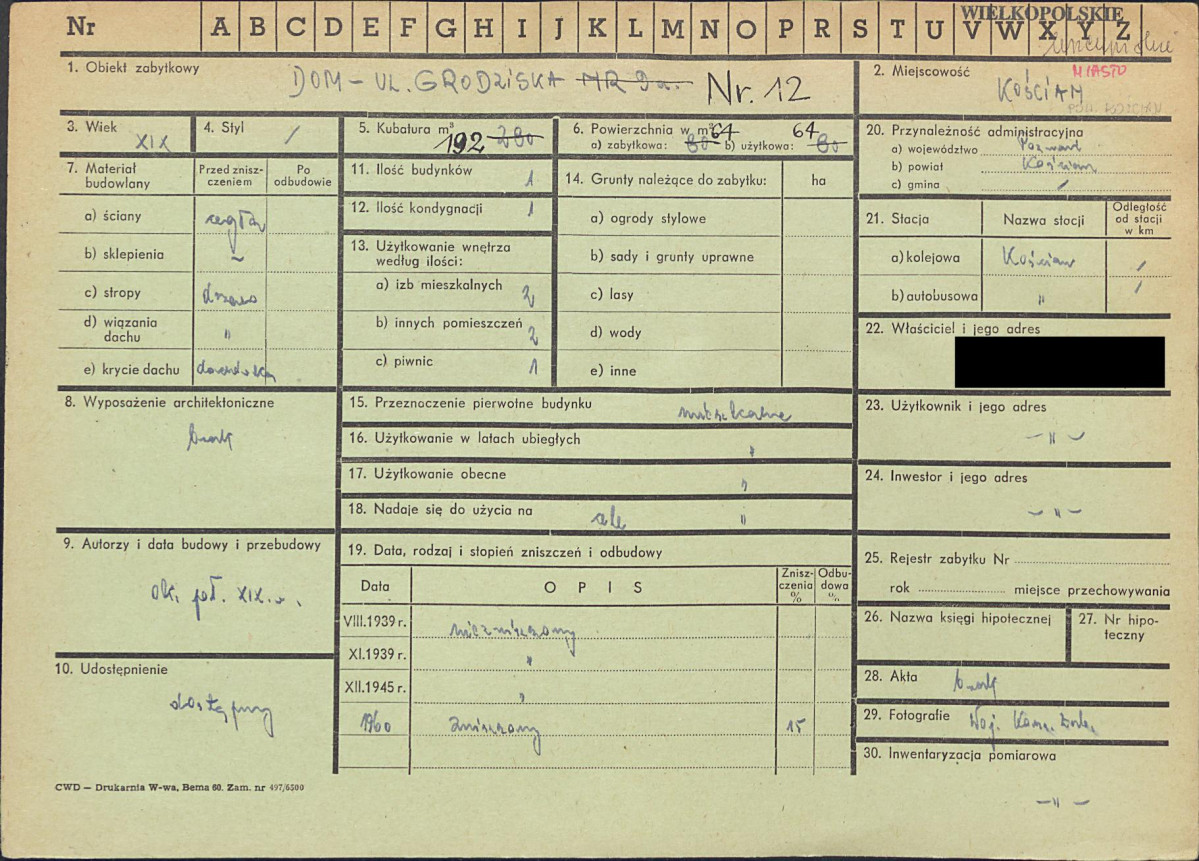 Nr A B C D E F G H I J K L M N O P R S T U V W X Y Z
WIELKOPOLSKIE
1. Obiekt zabytkowy
DOM - UL. GRODZISKA NR 9a. Nr. 12
2. Miejscowość
MIASTO
KOŚCIAN
POW. KOŚCIAN
3. Wiek
XIX
4. Styl
/
5. Kubatura m³
192 280
6. Powierzchnia w m²
a) zabytkowa: 80 64 b) użytkowa: 80 64
7. Materiał budowlany
Przed znisz-
czeniem
Po
odbudowie
a) ściany cegła
b) sklepienia ~
c) stropy drzewo
d) wiązania
dachu "
e) krycie dachu dachówka
8. Wyposażenie architektoniczne
brak
9. Autorzy i data budowy i przebudowy
ok. poł. XIX w.
10. Udostępnienie
dostępny
11. Ilość budynków 1
12. Ilość kondygnacji 1
13. Użytkowanie wnętrza
według ilości:
a) izb mieszkalnych 2
b) innych pomieszczeń 2
c) piwnic 1
14. Grunty należące do zabytku: ha
a) ogrody stylowe
b) sady i grunty uprawne
c) lasy
d) wody
e) inne
15. Przeznaczenie pierwotne budynku mieszkalne
16. Użytkowanie w latach ubiegłych "
17. Użytkowanie obecne "
18. Nadaje się do użycia na cele "
19. Data, rodzaj i stopień zniszczeń i odbudowy
Data
OPIS
Znisz-
czenia
%
Odbu-
dowa
%
VIII.1939 r. niezniszczony
XI.1939 r. "
XII.1945 r. "
1960 zniszczony 15
20. Przynależność administracyjna
a) województwo Poznań
b) powiat Kościan
c) gmina /
21. Stacja
Nazwa stacji
Odległość
od stacji
w km
a) kolejowa Kościan /
b) autobusowa " /
22. Właściciel i jego adres
23. Użytkownik i jego adres
- " -
24. Inwestor i jego adres
- " -
25. Rejestr zabytku Nr
rok miejsce przechowywania
26. Nazwa księgi hipotecznej
27. Nr hipo-
teczny
28. Akta brak
29. Fotografie Woj. Kons. Zabyt.
30. Inwentaryzacja pomiarowa
- " -
CWD — Drukarnia W-wa, Bema 60. Zam. nr 497/6500